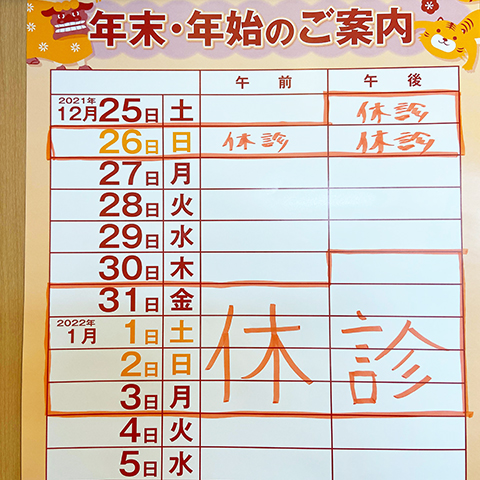 年末・年始のご案内
午前 午後
2021年
12月 25日 土 休診
26日 日 休診 休診
27日 月
28日 火
29日 水
30日 木
31日 金
2022年
1月 1日 土 休診
2日 日
3日 月
4日 火
5日 水